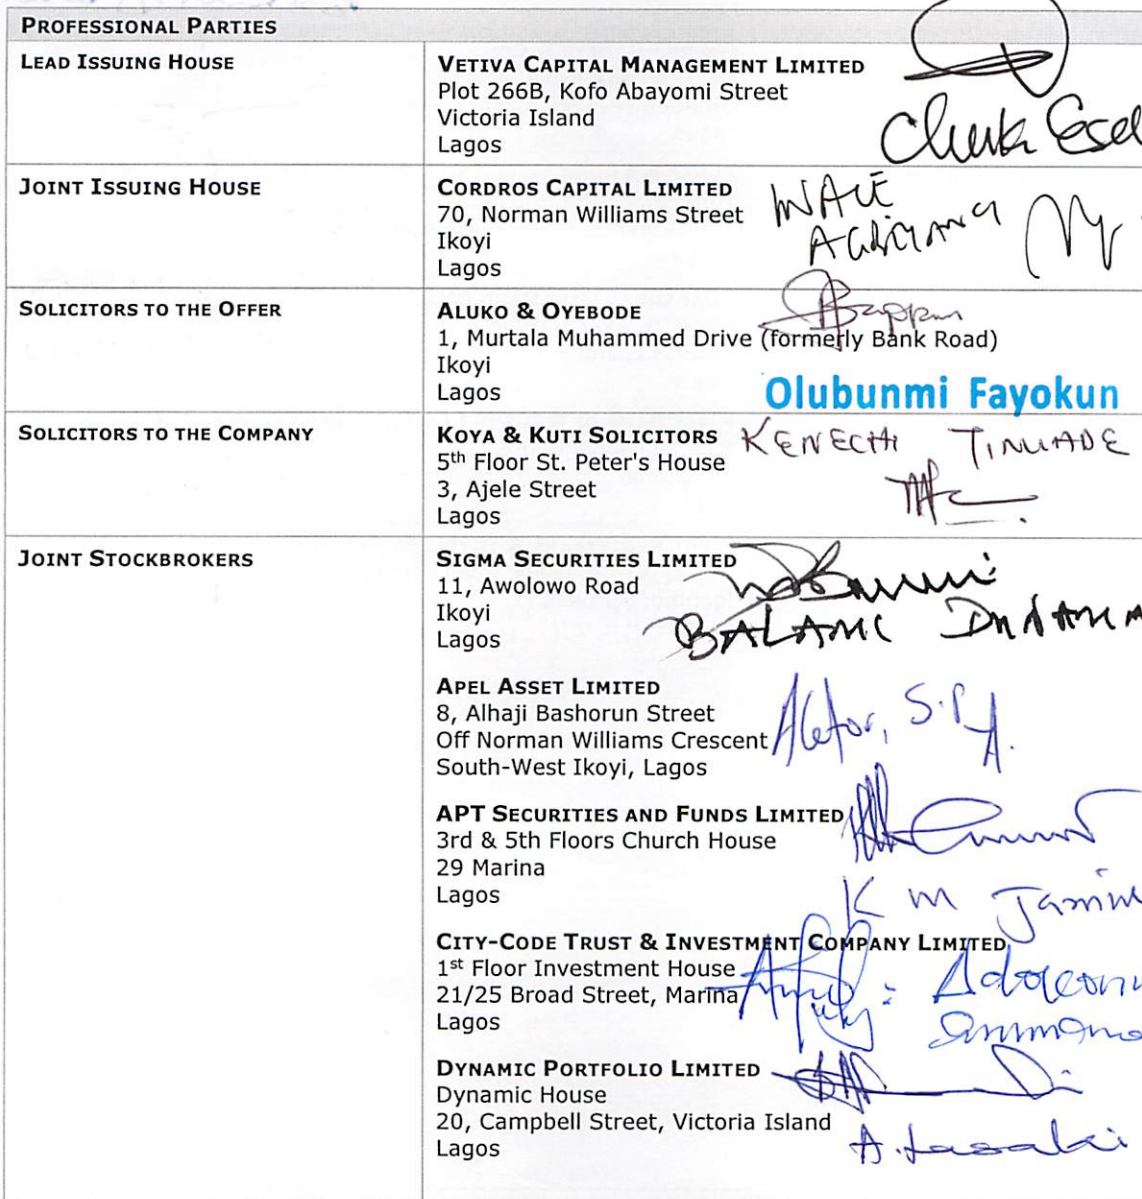 PROFESSIONAL PARTIES
LEAD ISSUING HOUSE
VETIVA CAPITAL MANAGEMENT LIMITED
Plot 266B, Kofo Abayomi Street
Victoria Island
Lagos
JOINT ISSUING HOUSE
CORDROS CAPITAL LIMITED
70, Norman Williams Street
Ikoyi
Lagos
SOLICITORS TO THE OFFER
ALUKO & OYEBODE
1, Murtala Muhammed Drive (formerly Bank Road)
Ikoyi
Lagos
Olubunmi Fayokun
SOLICITORS TO THE COMPANY
KOYA & KUTI SOLICITORS
KENECHI TINUADE
5th Floor St. Peter's House
3, Ajele Street
Lagos
JOINT STOCKBROKERS
SIGMA SECURITIES LIMITED
11, Awolowo Road
Ikoyi
Lagos
BALAMI
APEL ASSET LIMITED
8, Alhaji Bashorun Street
Off Norman Williams Crescent
South-West Ikoyi, Lagos
APT SECURITIES AND FUNDS LIMITED
3rd & 5th Floors Church House
29 Marina
Lagos
K M
CITY-CODE TRUST & INVESTMENT COMPANY LIMITED
1st Floor Investment House
21/25 Broad Street, Marina
Lagos
DYNAMIC PORTFOLIO LIMITED
Dynamic House
20, Campbell Street, Victoria Island
Lagos